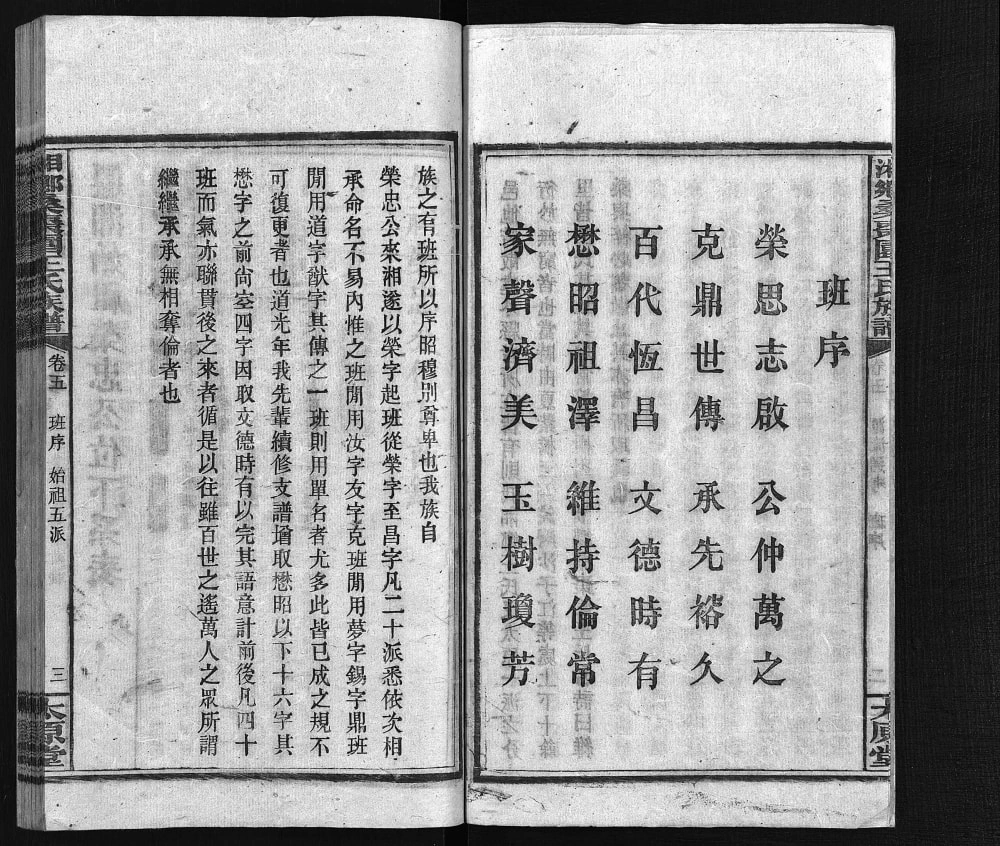 班序
榮思志啟 公仲萬之
克鼎世傳 承先裕久
百代恆昌 文德時有
懋昭祖澤 維持倫常
家聲濟美 玉樹瓊芳
族之有班所以序昭穆別尊卑也我族自
榮忠公來湘遂以榮字起班從榮字至昌字凡二十派悉依次相
承命名不易內惟之班閒用汝字友字克班閒用夢字錫字鼎班
閒用道字猷字其傳之一班則用單名者尤多此皆已成之規不
可復更者也道光年我先輩續修支譜增取懋昭以下十六字其
懋字之前尚空四字因取文德時有以完其語意計前後凡四十
班而氣亦聯貫後之來者循是以往雖百世之遙萬人之眾所謂
繼繼承承無相奪倫者也
王氏族譜
卷五
班序 始祖五派
三
太原堂
王氏族譜
二
太原堂